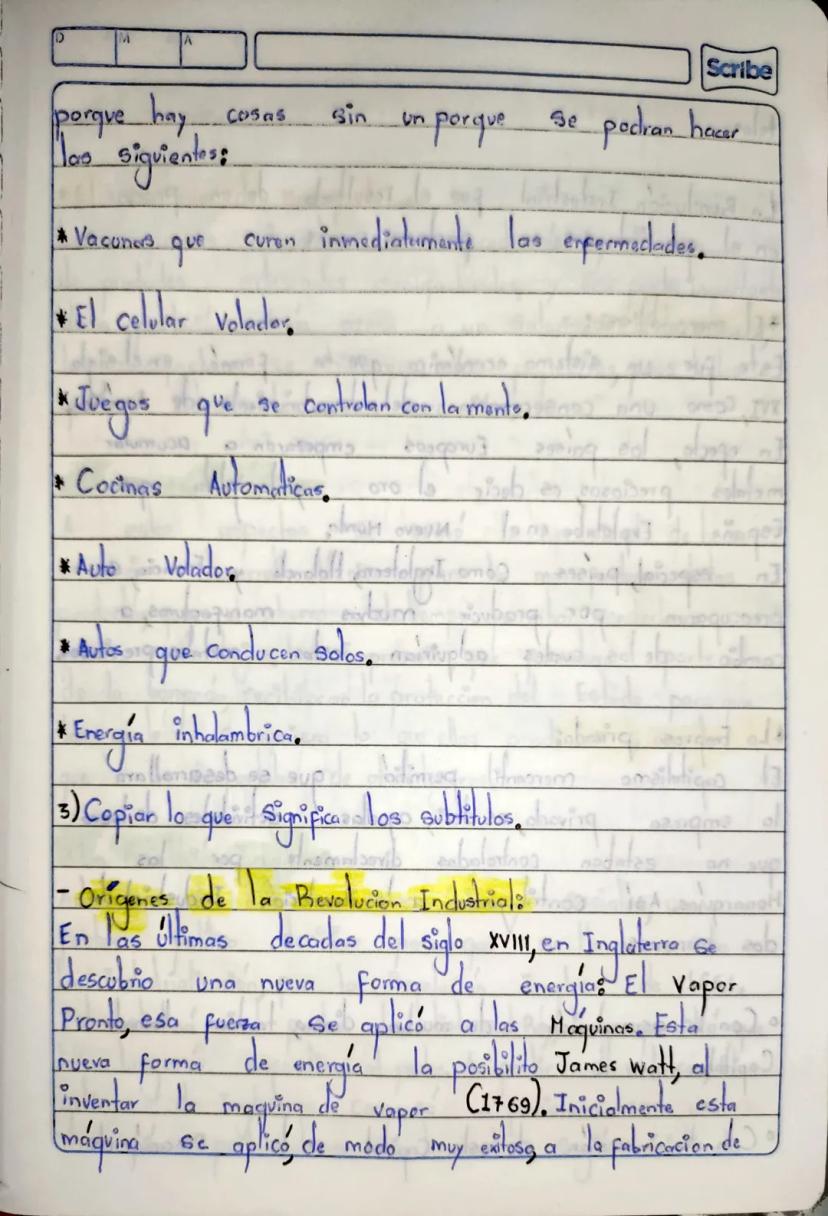 D M A
Scribe
porque hay cosas sin un porque se podran hacer
las siguientes:
* Vacunas que curen inmediatamente las enfermedades.
* El celular Volador.
* Juegos que se controlan con la mente.
* Cocinas Automaticas.
* Auto Volador.
* Autos que conducen solos.
* Energía inhalambrica.
3) Copiar lo que significa los subtitulos.
- Orígenes de la Revolucion Industrial:
En las últimas decadas del siglo XVIII, en Inglaterra se
descubrio una nueva forma de energía: El Vapor
Pronto, esa fuerza se aplicó a las Máquinas. Esta
nueva forma de energía la posibilito James Watt, al
inventar la maquina de vapor (1769). Inicialmente esta
máquina se aplicó, de modo muy exitoso, a la fabricacion de